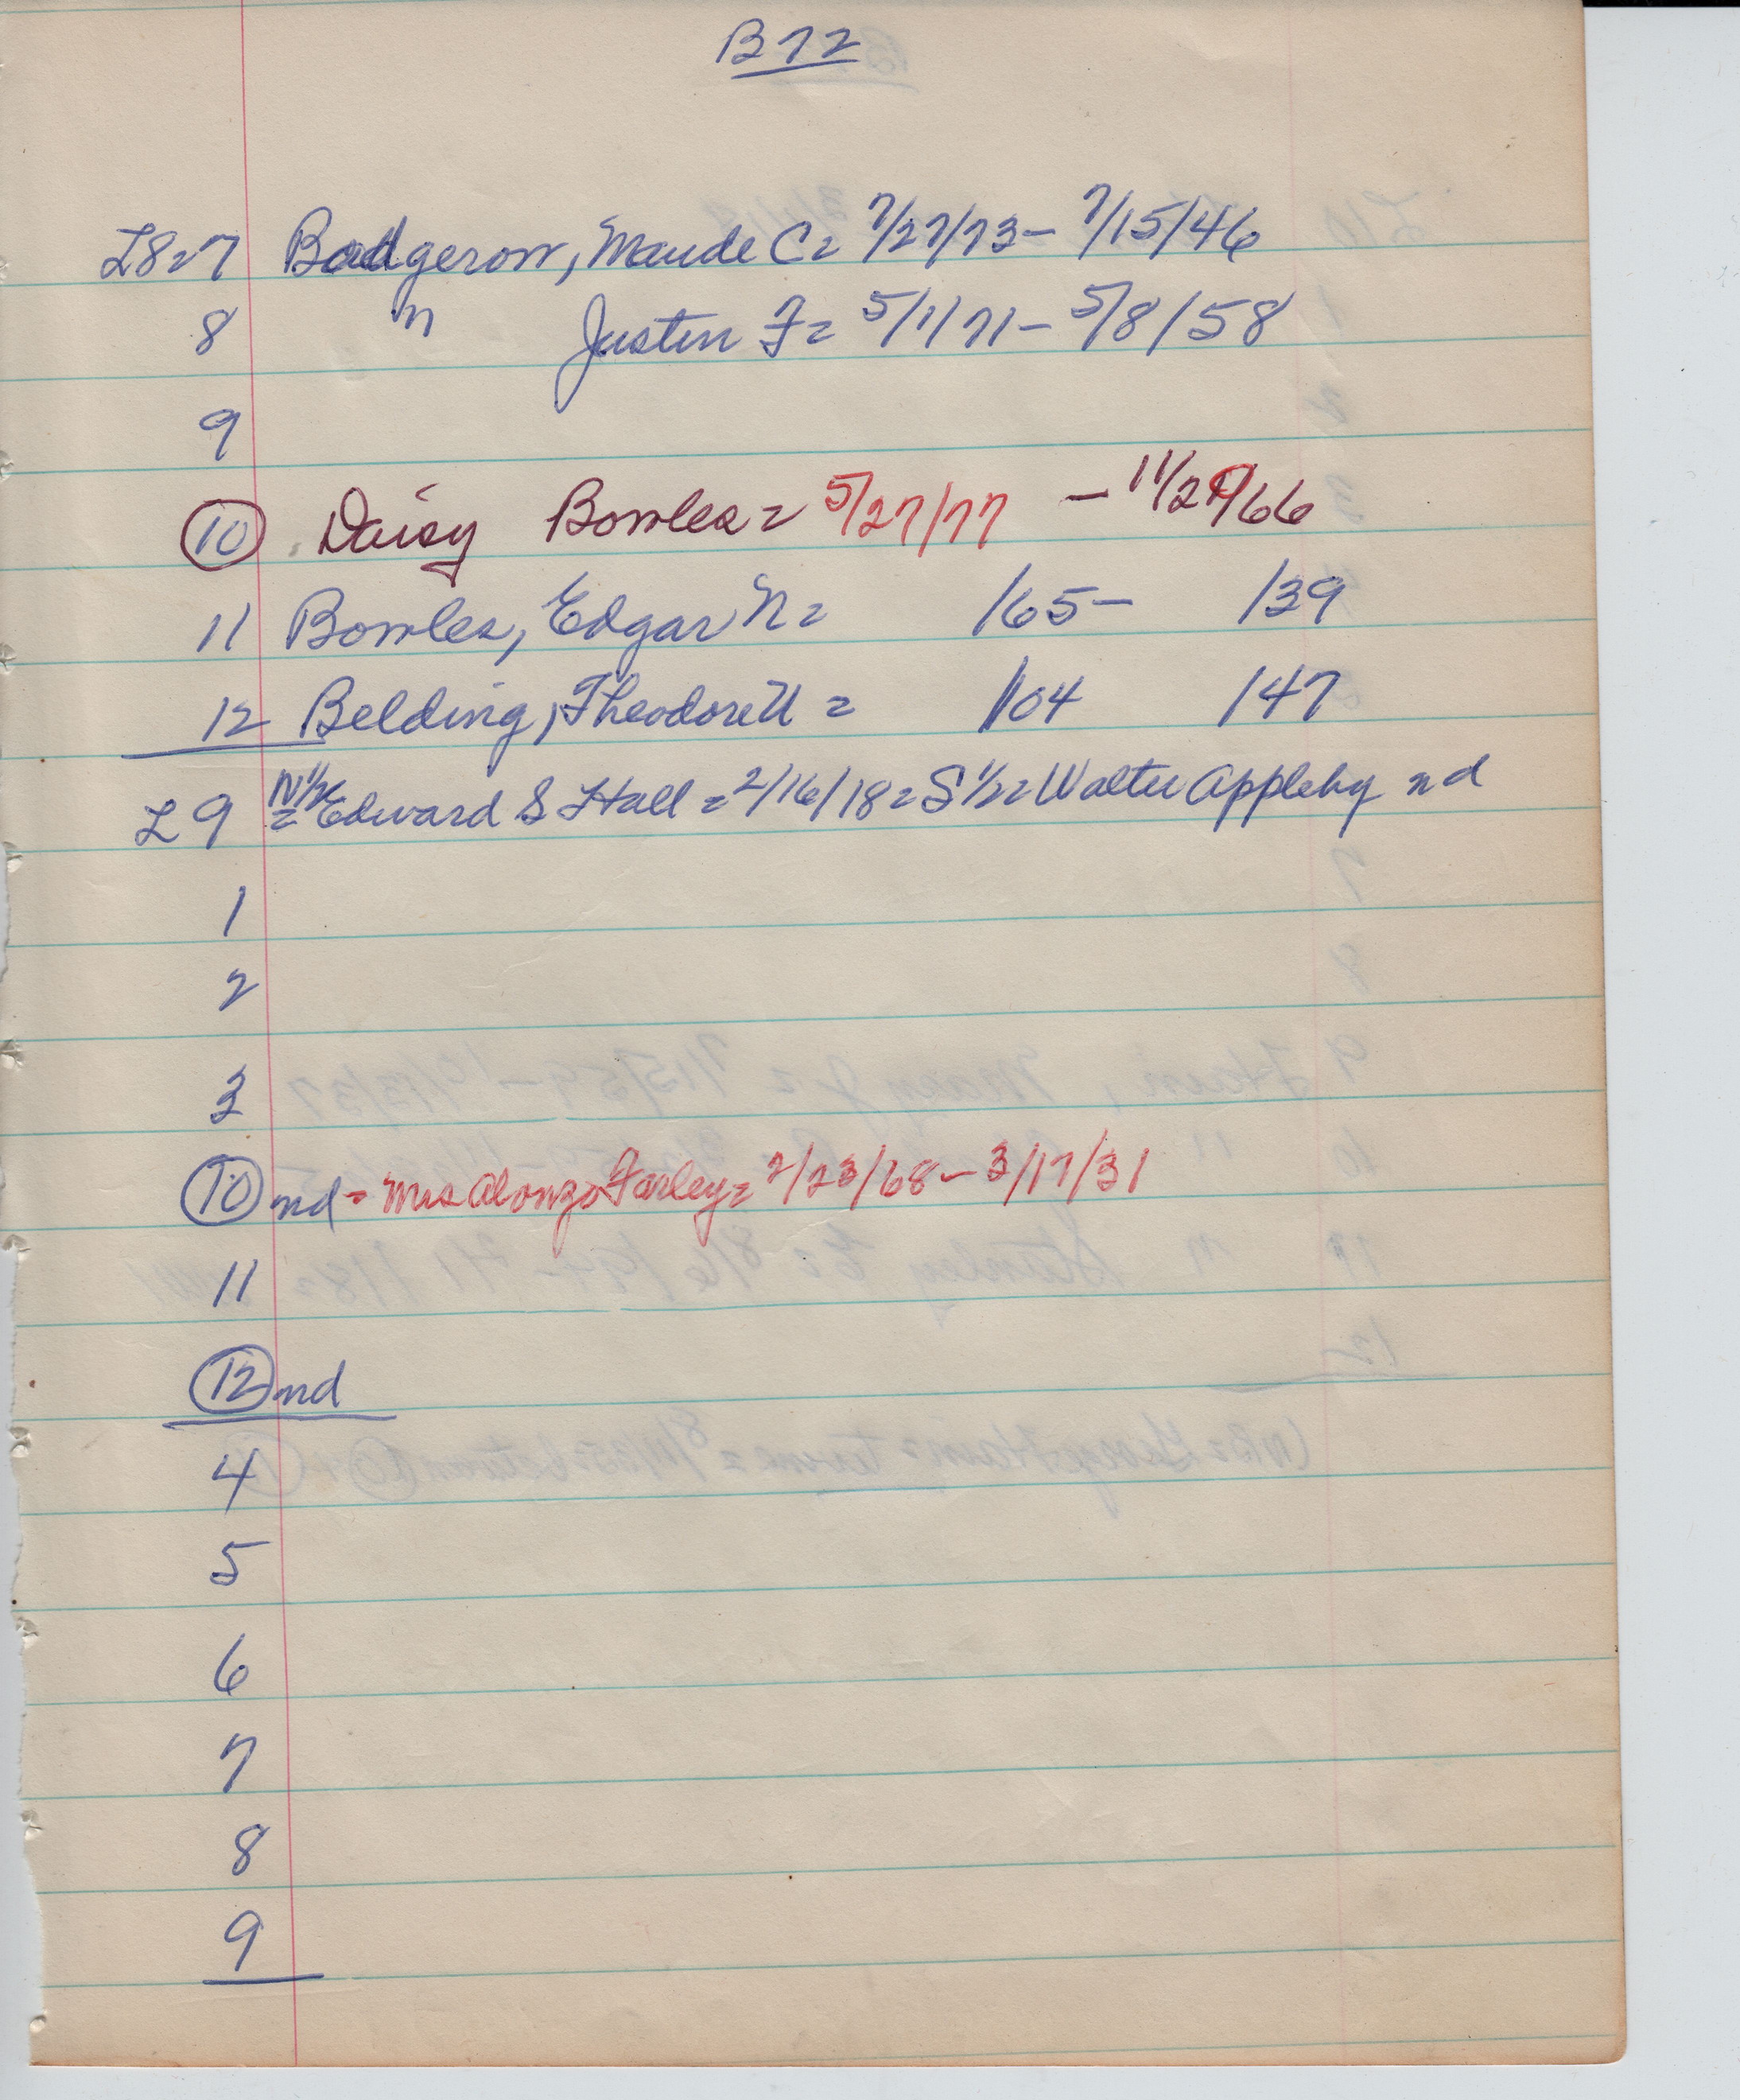 B72
L8=7 Badgerow, Maude C= 7/27/73 - 7/15/46
8 " Justin F= 5/1/71 - 5/8/58
9
10 Daisy Bowles = 5/27/77 - 11/2 /66
11 Bowles, Edgar N= /65 - /39
12 Belding, Theodore = /04 /47
L9 N1/2 = Edward S Hall = 2/16/18 = S 1/2 = Walter Appleby nd
1
2
3
10 nd = Mrs Alonzo Farley = 2/23/68 - 3/17/31
11
12 nd
4
5
6
7
8
9